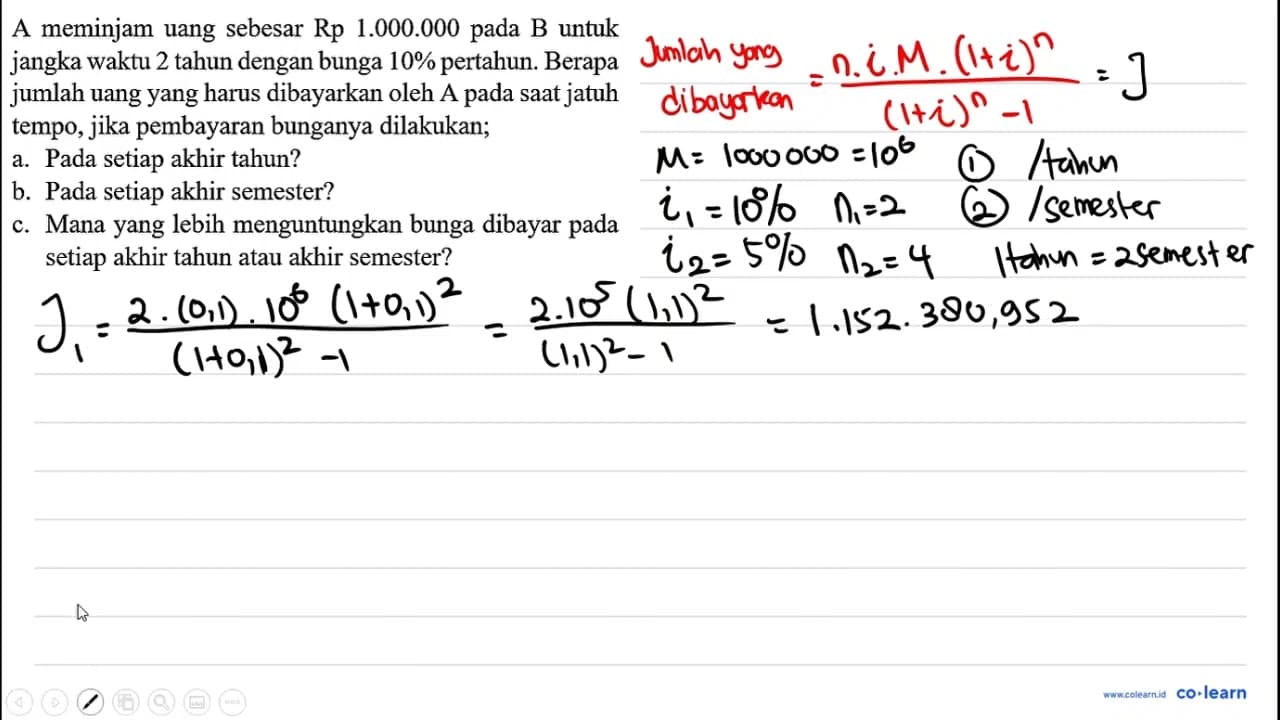 A meminjam uang sebesar Rp 1.000.000 pada B untuk
jangka waktu 2 tahun dengan bunga 10% pertahun. Berapa
jumlah uang yang harus dibayarkan oleh A pada saat jatuh
tempo, jika pembayaran bunganya dilakukan;
a. Pada setiap akhir tahun?
b. Pada setiap akhir semester?
c. Mana yang lebih menguntungkan bunga dibayar pada
setiap akhir tahun atau akhir semester?
Jumlah yang dibayarkan = n.i.M.(1+i)^n / (1+i)^n -1 = J
M = 1000000 = 10^6 ① /tahun
i₁ = 10% n₁=2 ② /semester
i₂ = 5% n₂=4 1tahun = 2semester
J₁ = 2.(0,1).10^6 (1+0,1)^2 / (1+0,1)^2 -1 = 2.10^5 (1,1)^2 / (1,1)^2 - 1 = 1.152.380,952
www.colearn.id co·learn